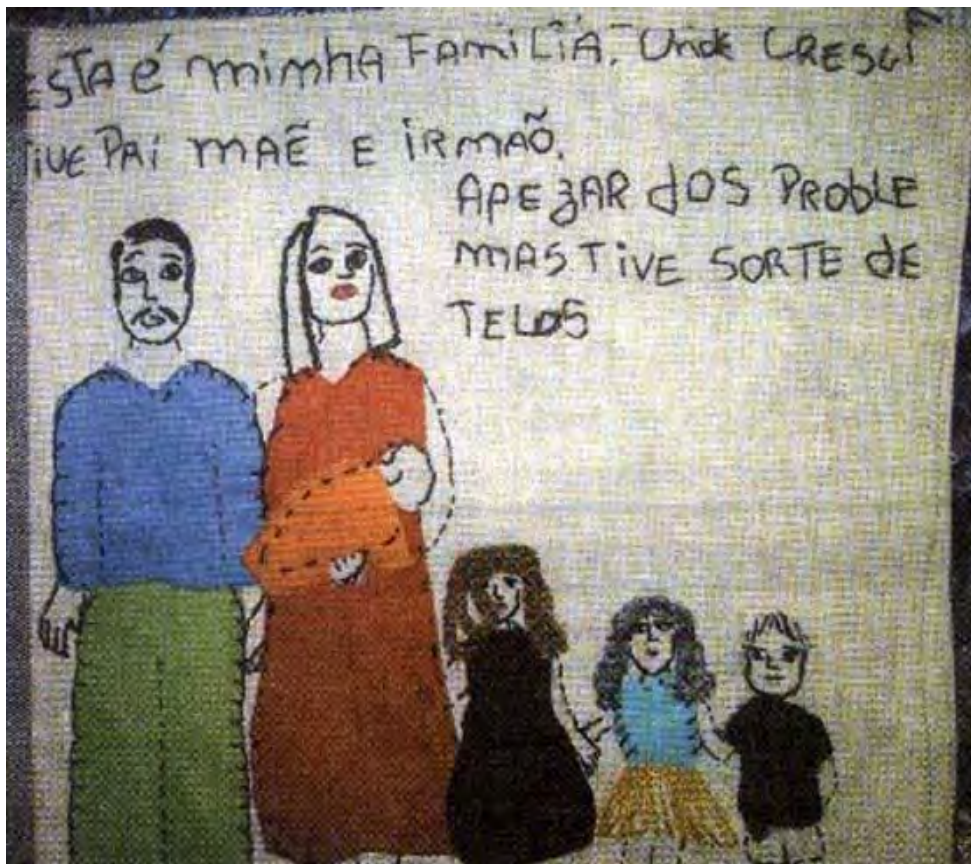 ESTA é minhA FAMiLiA, Onde CRESCi
TiVE PAi MAÊ E iRMAÕ.
APEZAR dOS PROBLE
MAS TiVE SORTE dE
TELOS